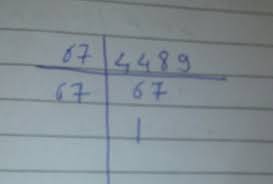 67 4489
67 67
1